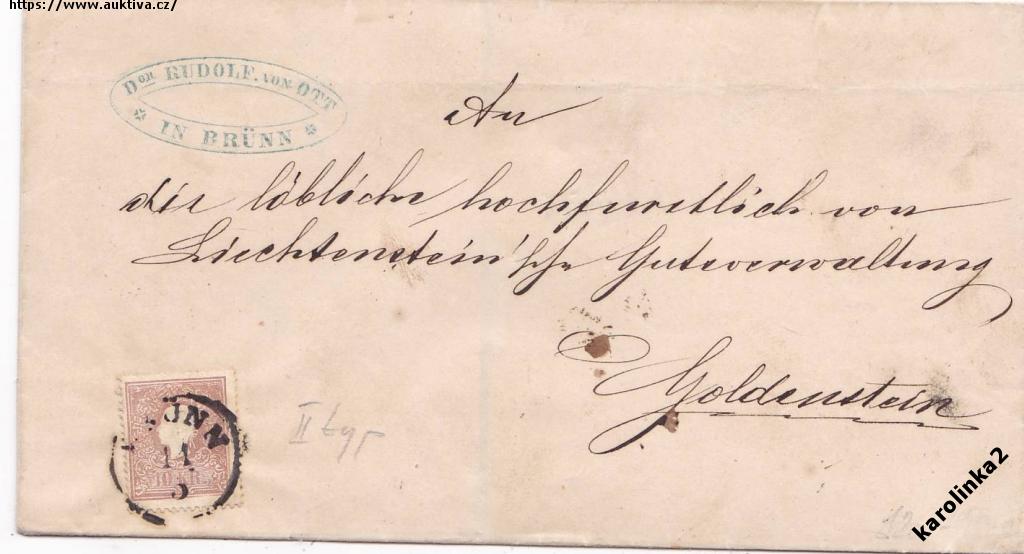 https://www.auktiva.cz/
Dor RUDOLF VON OTT
IN BRÜNN
An
die löbliche hochfurstlich von
Liechtenstein'sche Gutsverwaltung
Goldenstein
BRÜNN
11
5
10 KR
II typ
karolinka2